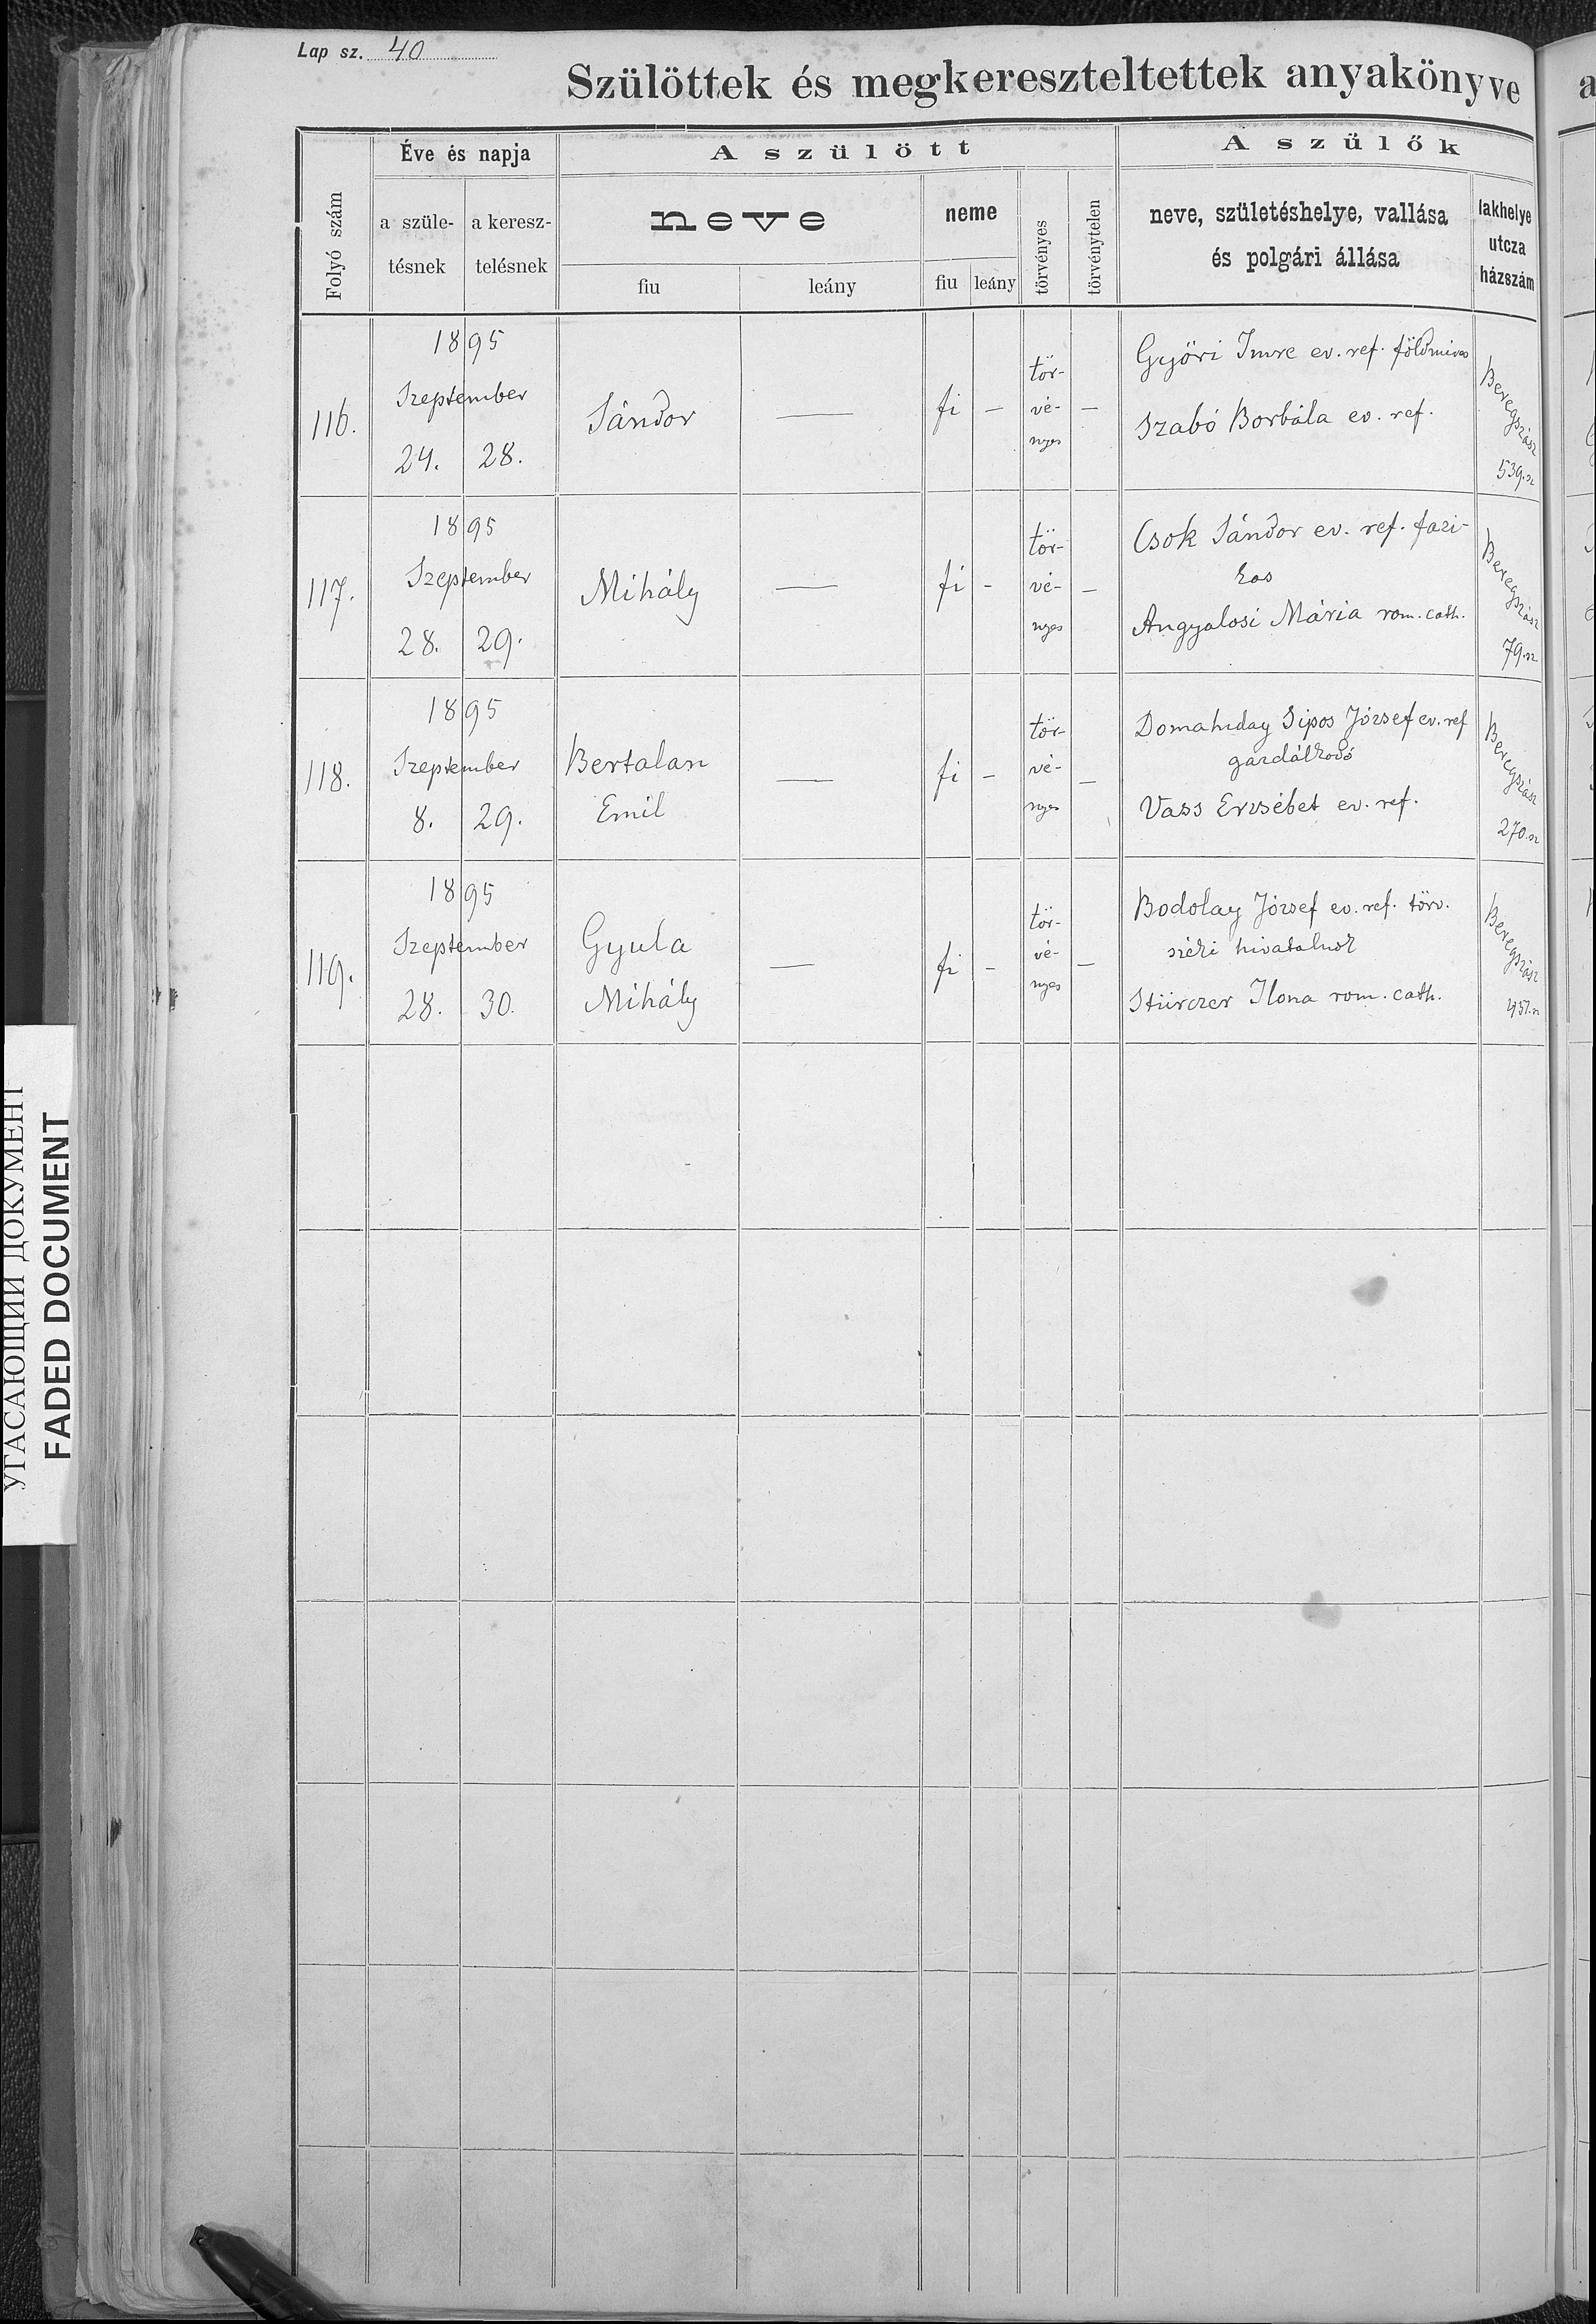 Lap sz. 40
Szülöttek és megkereszteltettek anyakönyve
Folyó szám
Éve és napja
a szüle-
tésnek
a keresz-
telésnek
A szülött
neve
fiu
leány
neme
fiu
leány
törvényes
törvénytelen
A szülők
neve, születéshelye, vallása
és polgári állása
lakhelye
utcza
házszám
116.
1895
Szeptember
24. 28.
Sándor
—
fi
—
tör-
vé-
nyes
—
Győri Imre ev. ref. földmives
Szabó Borbála ev. ref.
Beregszász
539. sz
117.
1895
Szeptember
28. 29.
Mihály
—
fi
-
tör-
vé-
nyes
—
Csok Sándor ev. ref. fazi-
kas
Angyalosi Mária rom. cath.
Beregszász
79. sz
118.
1895
Szeptember
8. 29.
Bertalan
Emil
—
fi
-
tör-
vé-
nyes
—
Domahiday Sipos József ev. ref
gazdálkodó
Vass Erzsébet ev. ref.
Beregszász
270. sz
119.
1895
Szeptember
28. 30.
Gyula
Mihály
—
fi
-
tör-
vé-
nyes
—
Bodolay József ev. ref. törv.
széki hivatalnok
Stürczer Ilona rom. cath.
Beregszász
УГАСАЮЩИЙ ДОКУМЕНТ
FADED DOCUMENT